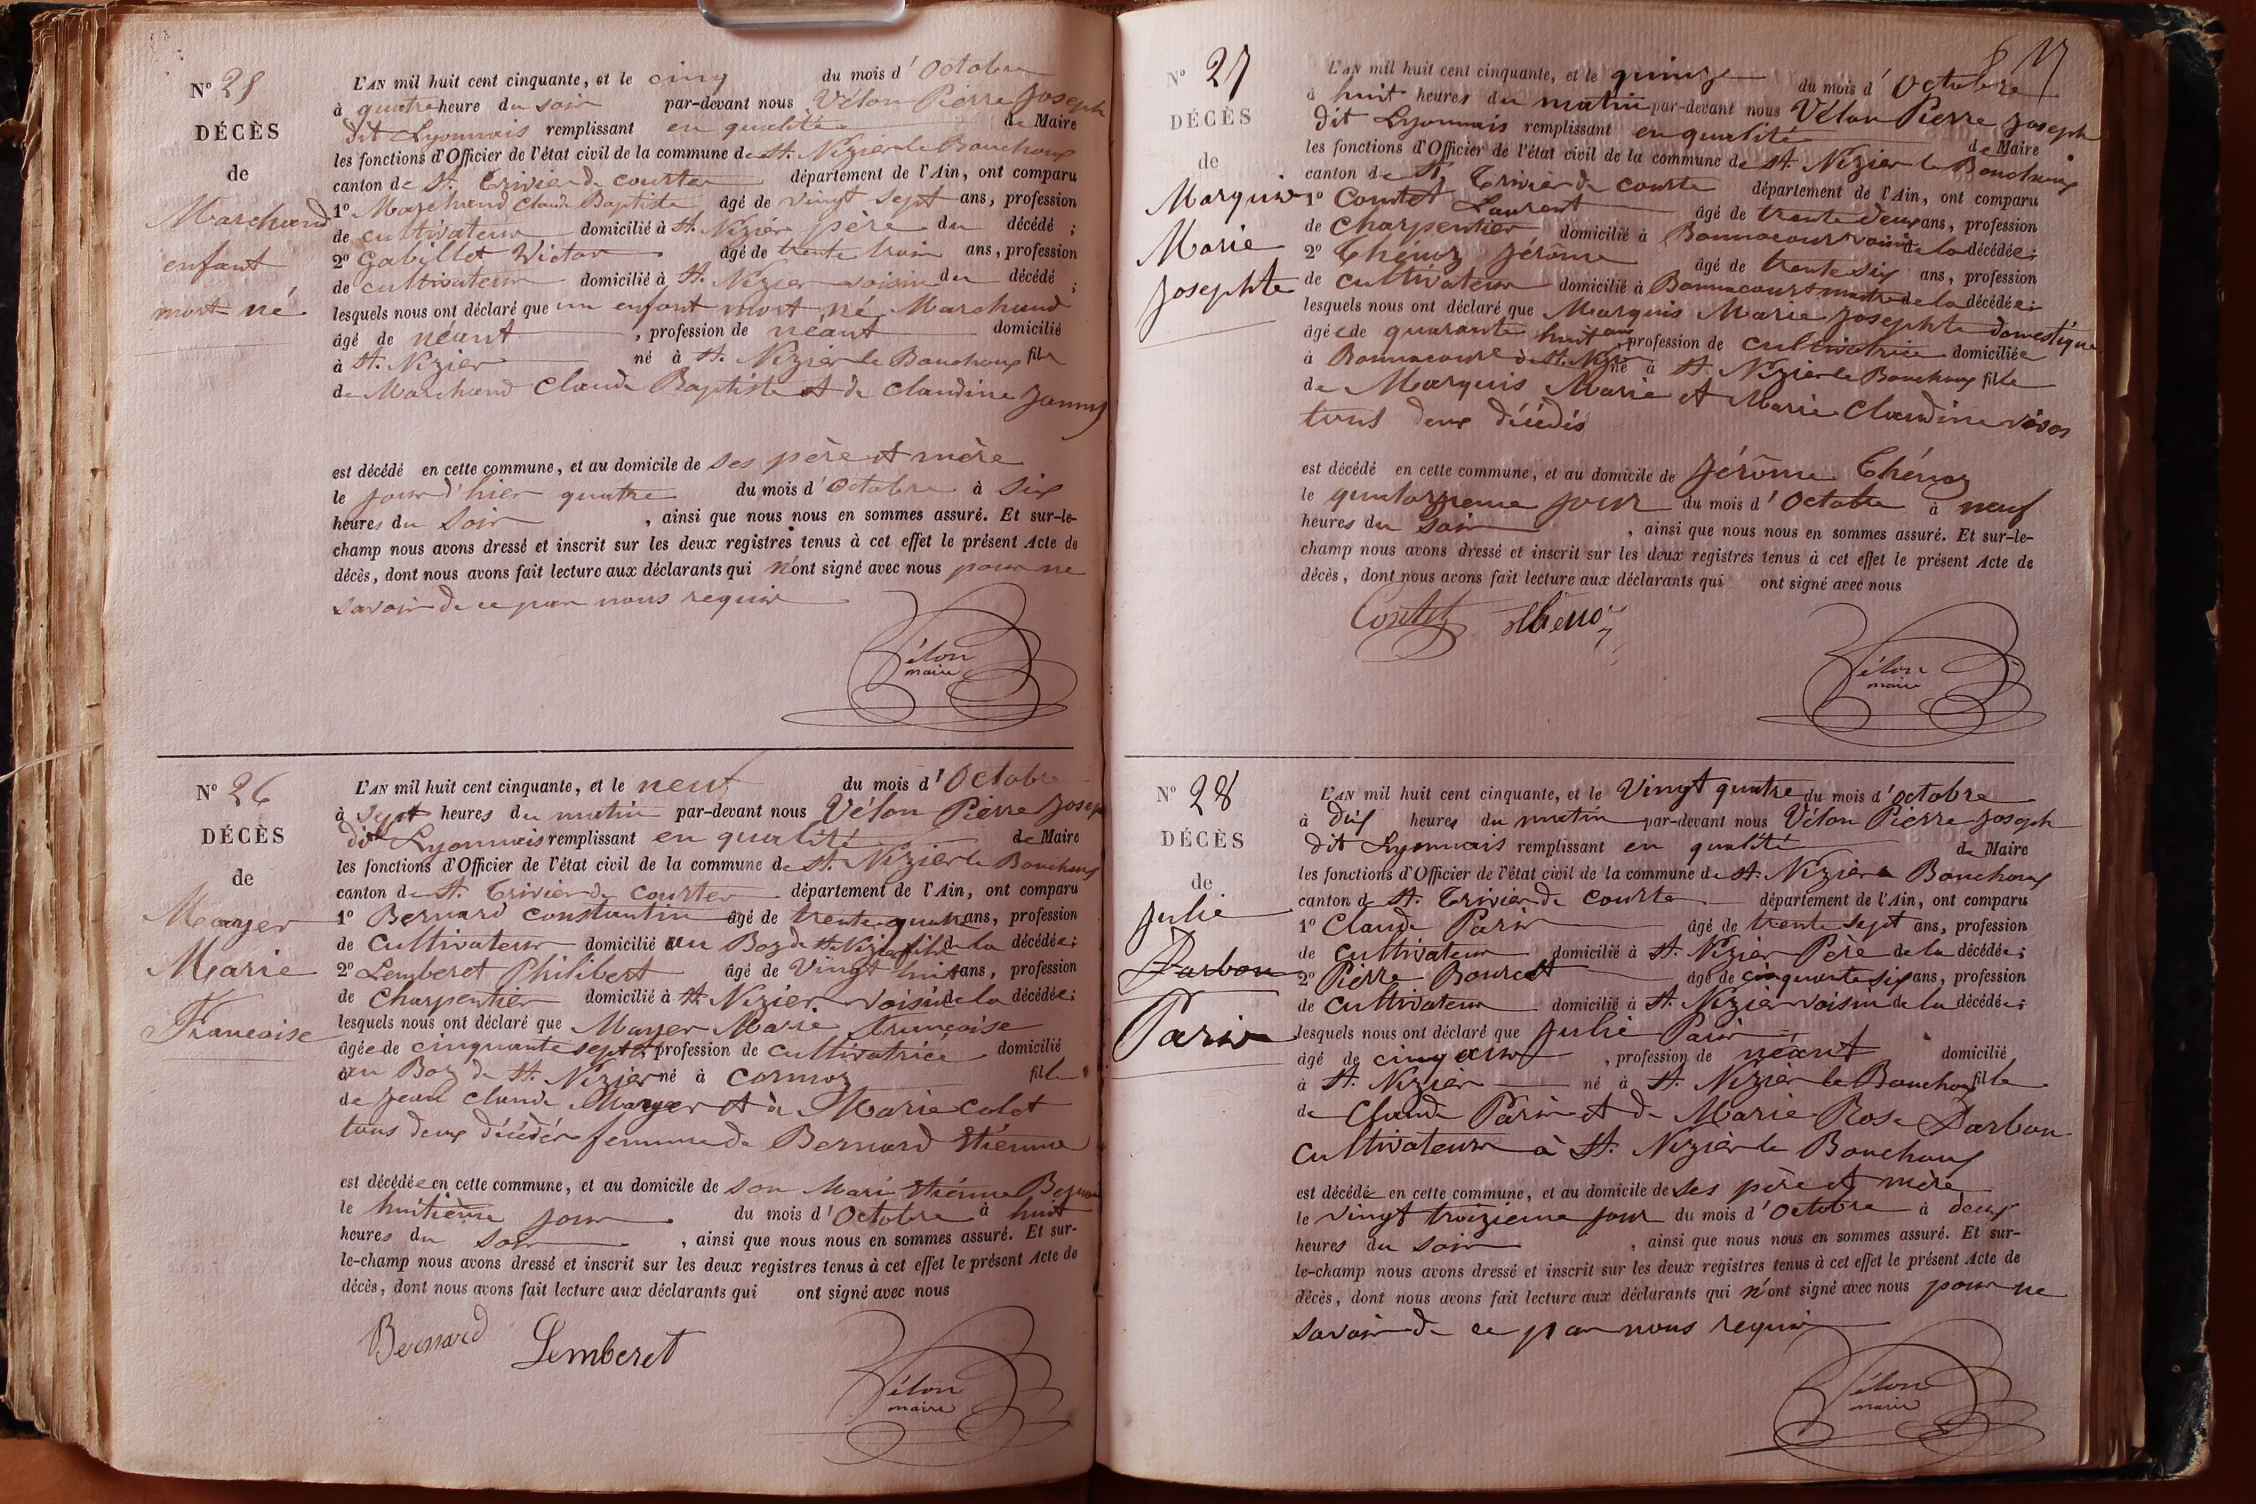 N° 25
DÉCÈS
de
Marchand
enfant
mort né
L'AN mil huit cent cinquante, et le cinq du mois d'Octobre
à quatre heure du soir par-devant nous Vélon Pierre Joseph
dit Lyonnais remplissant en qualité de Maire
les fonctions d'Officier de l'état civil de la commune de St. Nizier le Bouchoux
canton de St. Trivier de courtes département de l'Ain, ont comparu
1° Marchand Claude Baptiste âgé de vingt sept ans, profession
de cultivateur domicilié à St. Nizier père du décédé ;
2° Gabillet Victor âgé de trente trois ans, profession
de cultivateur domicilié à St. Nizier voisin du décédé ;
lesquels nous ont déclaré que un enfant mort né Marchand
âgé de néant , profession de néant domicilié
à St. Nizier né à St. Nizier le Bouchoux fils
de Marchand Claude Baptiste et de Claudine
est décédé en cette commune, et au domicile de ses père et mère
le jour d'hier quatre du mois d'Octobre à six
heures du soir , ainsi que nous nous en sommes assuré. Et sur-le-
champ nous avons dressé et inscrit sur les deux registres tenus à cet effet le présent Acte de
décès, dont nous avons fait lecture aux déclarants qui n'ont signé avec nous pour ne
savoir de ce par nous requis
Vélon
maire
N° 26
DÉCÈS
de
Mayer
Marie
Francoise
L'AN mil huit cent cinquante, et le neuf du mois d'Octobre
à sept heures du matin par-devant nous Vélon Pierre Joseph
dit Lyonnais remplissant en qualité de Maire
les fonctions d'Officier de l'état civil de la commune de St. Nizier le Bouchoux
canton de St. Trivier de courtes département de l'Ain, ont comparu
1° Bernard constantin âgé de trente quatre ans, profession
de cultivateur domicilié au Boz de St. Nizier fils de la décédée ;
2° Lemberet Philibert âgé de Vingt huit ans, profession
de charpentier domicilié à St. Nizier voisin de la décédée ;
lesquels nous ont déclaré que Mayer Marie francoise
âgée de cinquante sept , profession de cultivatrice domicilié
au Boz de St. Nizier né à cormoz fille
de Jean claude Mayer et de Marie colet
tous deux décédés femme de Bernard Etiénne
est décédée en cette commune, et au domicile de son Mari Etiénne Bernard
le huitième jour du mois d'Octobre à huit
heures du soir , ainsi que nous nous en sommes assuré. Et sur-
le-champ nous avons dressé et inscrit sur les deux registres tenus à cet effet le présent Acte de
décès, dont nous avons fait lecture aux déclarants qui ont signé avec nous
Bernard Lemberet
Vélon
maire
17
N° 27
DÉCÈS
de
Marquis
Marie
Josephte
L'AN mil huit cent cinquante, et le quinze du mois d'Octobre
à huit heures du matin par-devant nous Vélon Pierre Joseph
dit Lyonnais remplissant en qualité de Maire
les fonctions d'Officier de l'état civil de la commune de St. Nizier le Bouchoux
canton de St. Trivier de courte département de l'Ain, ont comparu
1° Contet Laurent âgé de trente deux ans, profession
de charpentier domicilié à Bonnacourt voisin de la décédée ;
2° Thénoz Jérôme âgé de trente six ans, profession
de cultivateur domicilié à Bonnacourt maitre de la décédée ;
lesquels nous ont déclaré que Marquis Marie Josephte domestique
âgée de quarante huit ans , profession de cultivatrice domiciliée
à Bonnacourt de St. Nizier né à St. Nizier le Bouchoux fille
de Marquis Marie et Marie Claudine
tous deux décédés
est décédé en cette commune, et au domicile de Jérôme Thénoz
le quatorzieme jour du mois d'Octobre à neuf
heures du soir , ainsi que nous nous en sommes assuré. Et sur-le-
champ nous avons dressé et inscrit sur les deux registres tenus à cet effet le présent Acte de
décès, dont nous avons fait lecture aux déclarants qui ont signé avec nous
Contet thenoz
Vélon
maire
N° 28
DÉCÈS
de
Julie
Darbon
Parin
L'AN mil huit cent cinquante, et le Vingt quatre du mois d'octobre
à dix heures du matin par-devant nous Vélon Pierre Joseph
dit Lyonnais remplissant en qualité de Maire
les fonctions d'Officier de l'état civil de la commune de St. Nizier le Bouchoux
canton de St. Trivier de courte département de l'Ain, ont comparu
1° Claude Parin âgé de trente sept ans, profession
de cultivateur domicilié à St. Nizier Père de la décédée ;
2° Pierre Bourcet âgé de cinquante six ans, profession
de cultivateur domicilié à St. Nizier voisin de la décédée ;
lesquels nous ont déclaré que Julie Parin
âgé de cinq ans , profession de néant domicilié
à St. Nizier né à St. Nizier le Bouchoux fille
de Claude Parin et de Marie Rose Darbon
cultivateurs à St. Nizier le Bouchoux
est décédé en cette commune, et au domicile de ses père et mère
le vingt troizieme jour du mois d'octobre à deux
heures du soir , ainsi que nous nous en sommes assuré. Et sur-
le-champ nous avons dressé et inscrit sur les deux registres tenus à cet effet le présent Acte de
décès, dont nous avons fait lecture aux déclarants qui n'ont signé avec nous pour ne
savoir de ce par nous requis
Vélon
maire